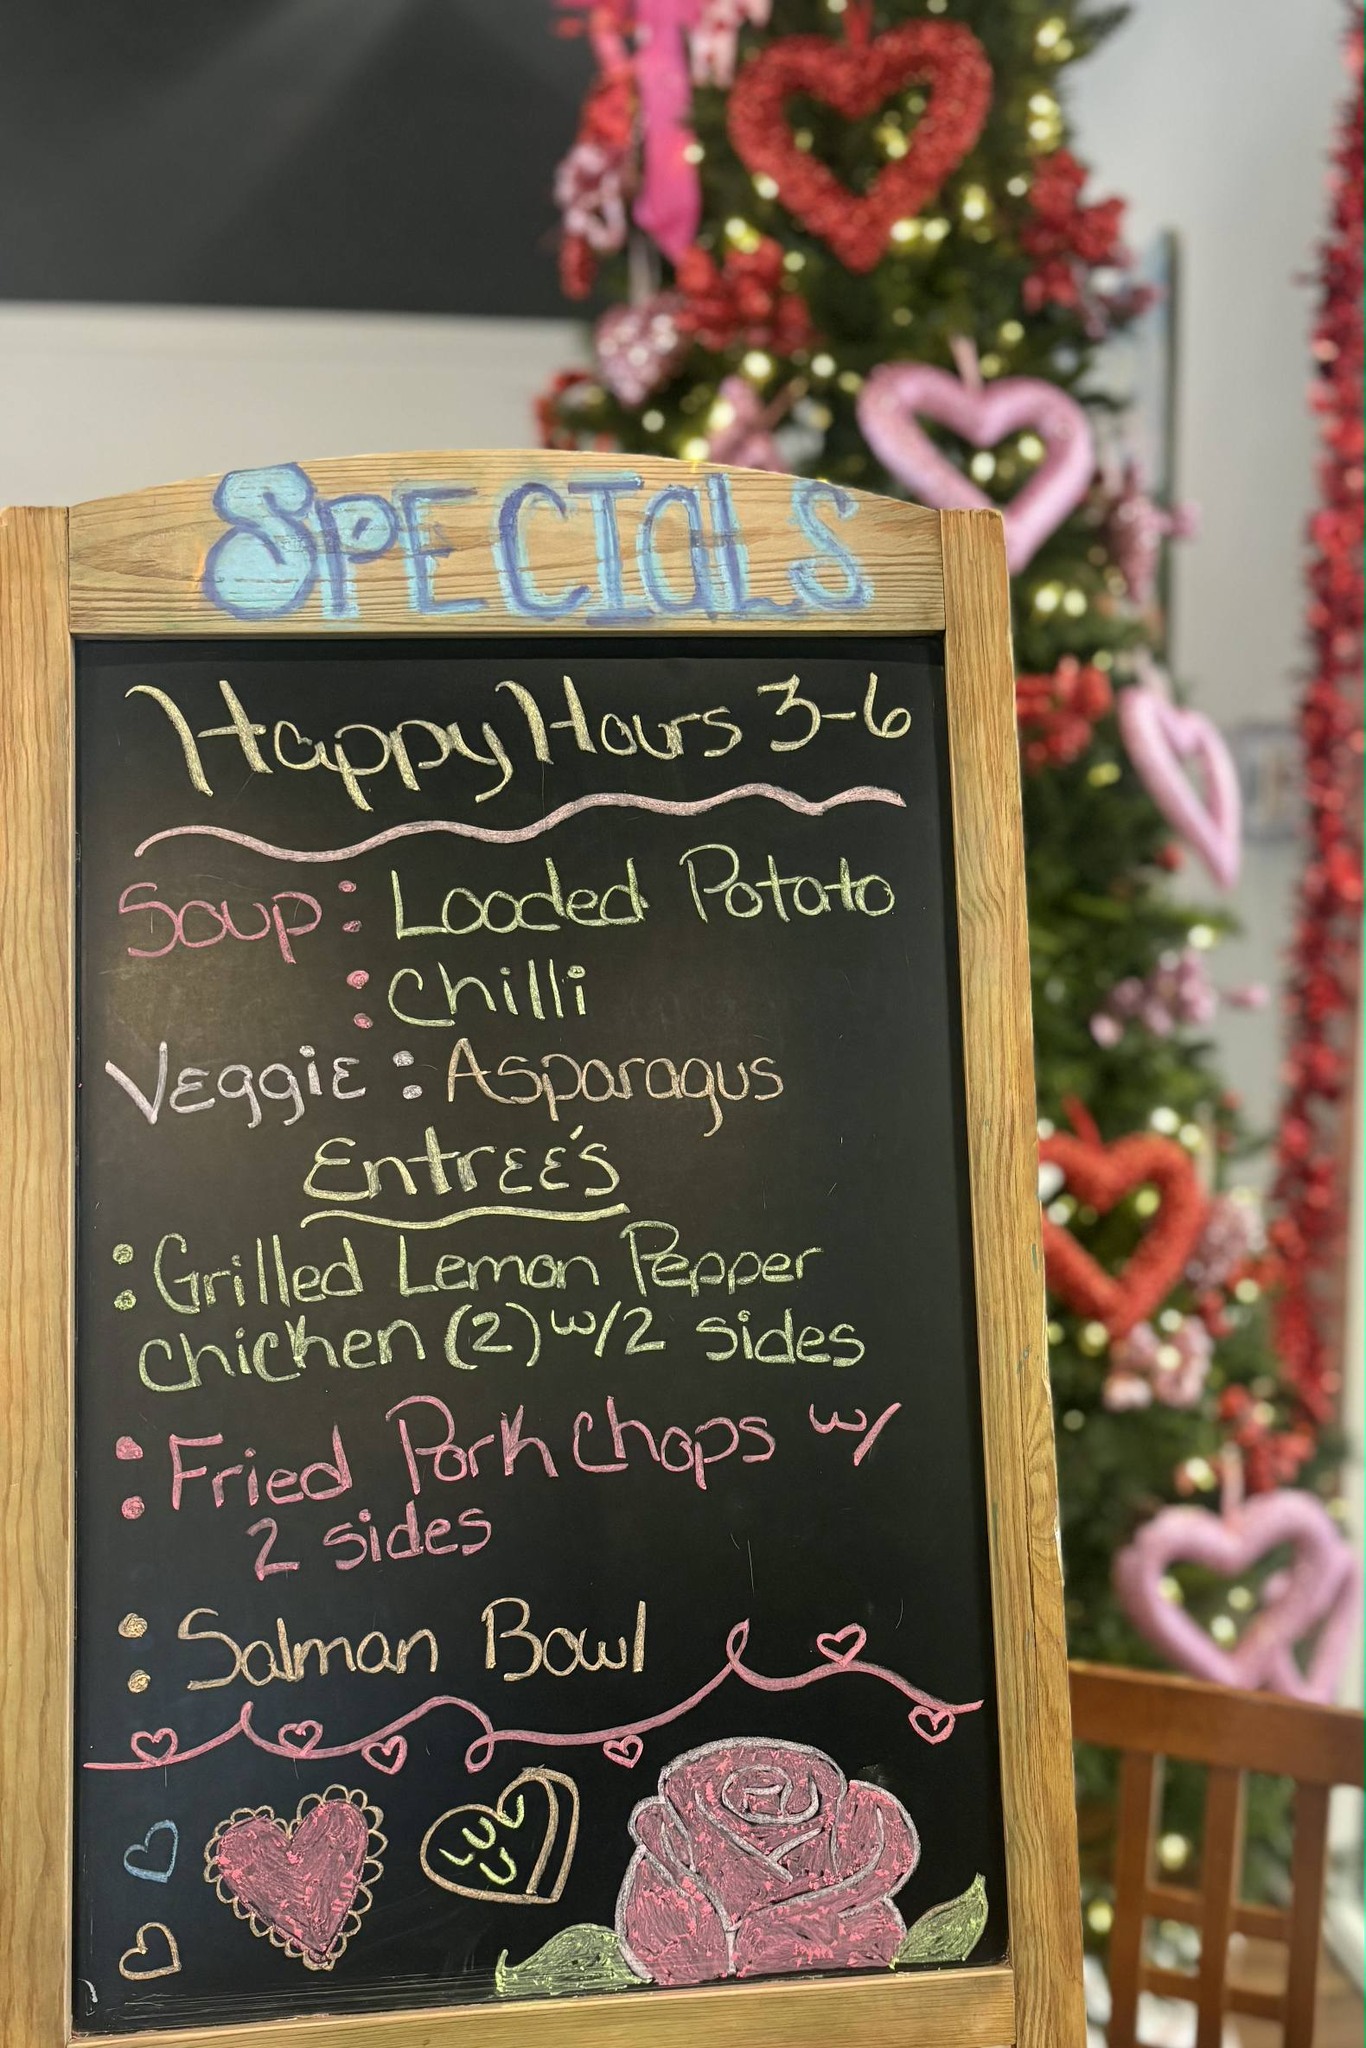 SPECIALS
Happy Hours 3-6
Soup: Looded Potato
: Chilli
Veggie: Asparagus
Entreé's
: Grilled Lemon Pepper
Chicken (2) w/2 sides
: Fried Pork Chops w/
2 sides
: Salman Bowl
LUV
U